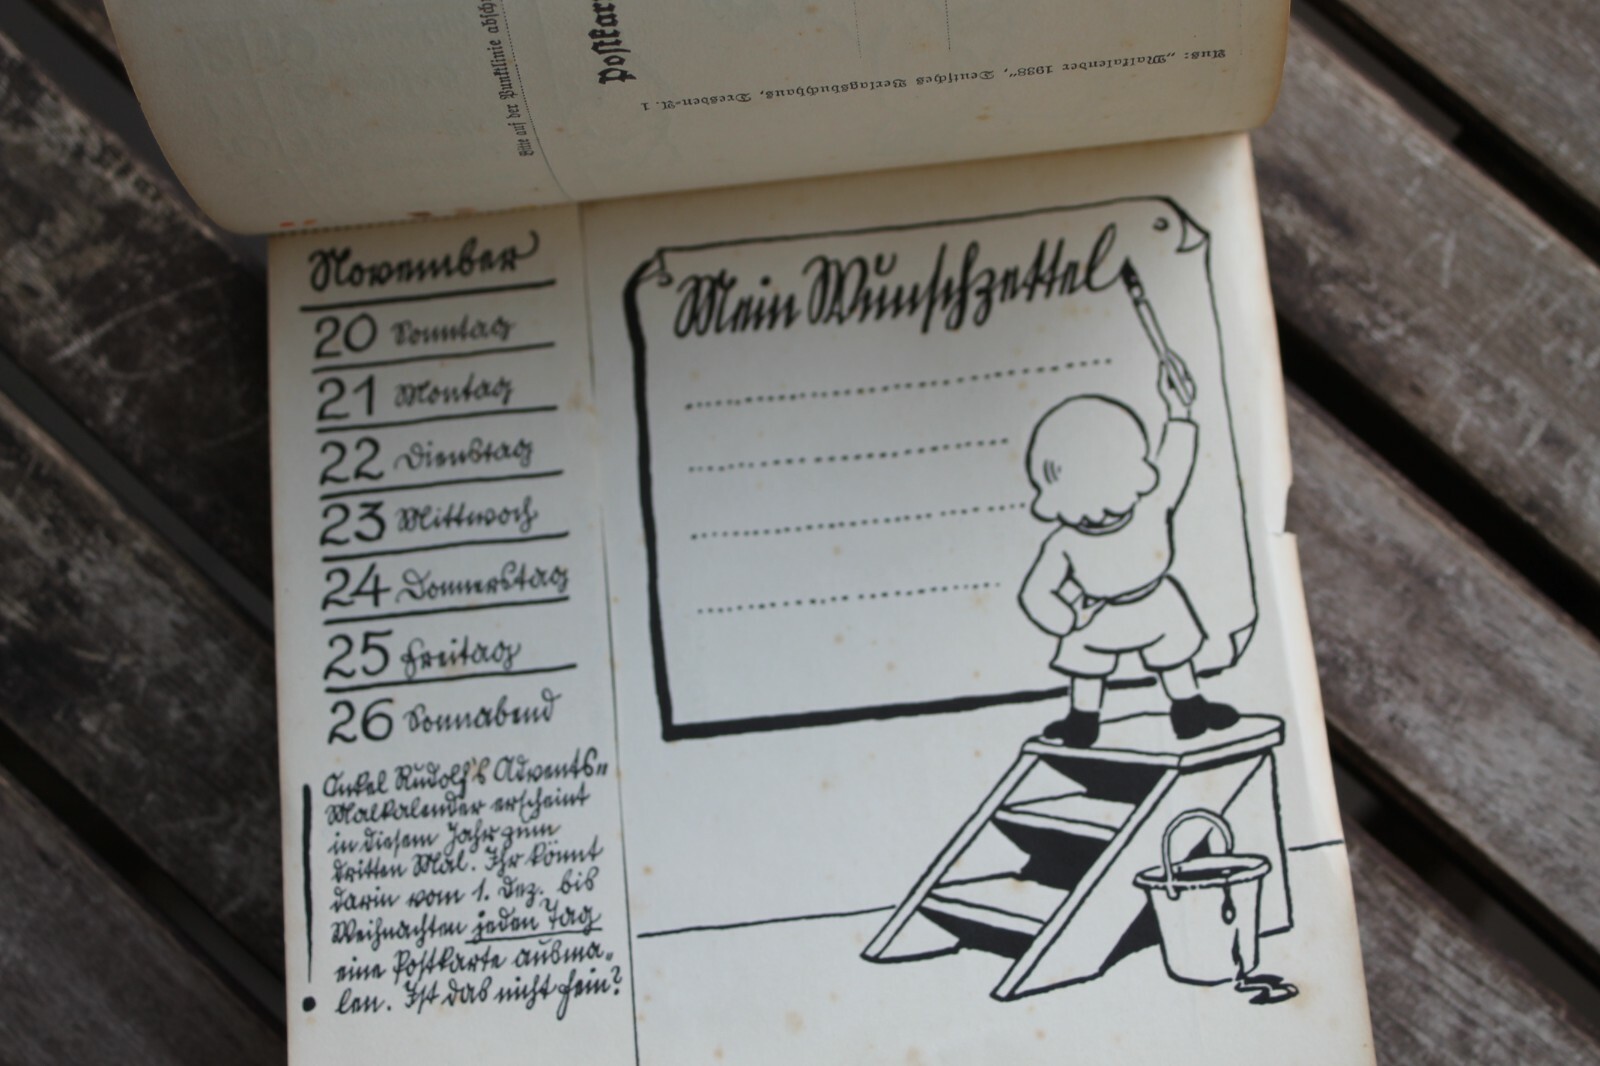 Bitte auf der Punktlinie absch
Postkar
Aus: „Malkalender 1938“, Deutsches Verlagsbuchhaus, Dresden-A. 1
November
20 Sonntag
21 Montag
22 Dienstag
23 Mittwoch
24 Donnerstag
25 Freitag
26 Sonnabend
Onkel Rudolf's Advents-
Malkalender erscheint
in diesem Jahr zum
dritten Mal. Ihr könnt
darin vom 1. Dez. bis
Weihnachten jeden Tag
eine Postkarte ausma-
len. Ist das nicht fein?
Mein Wunschzettel